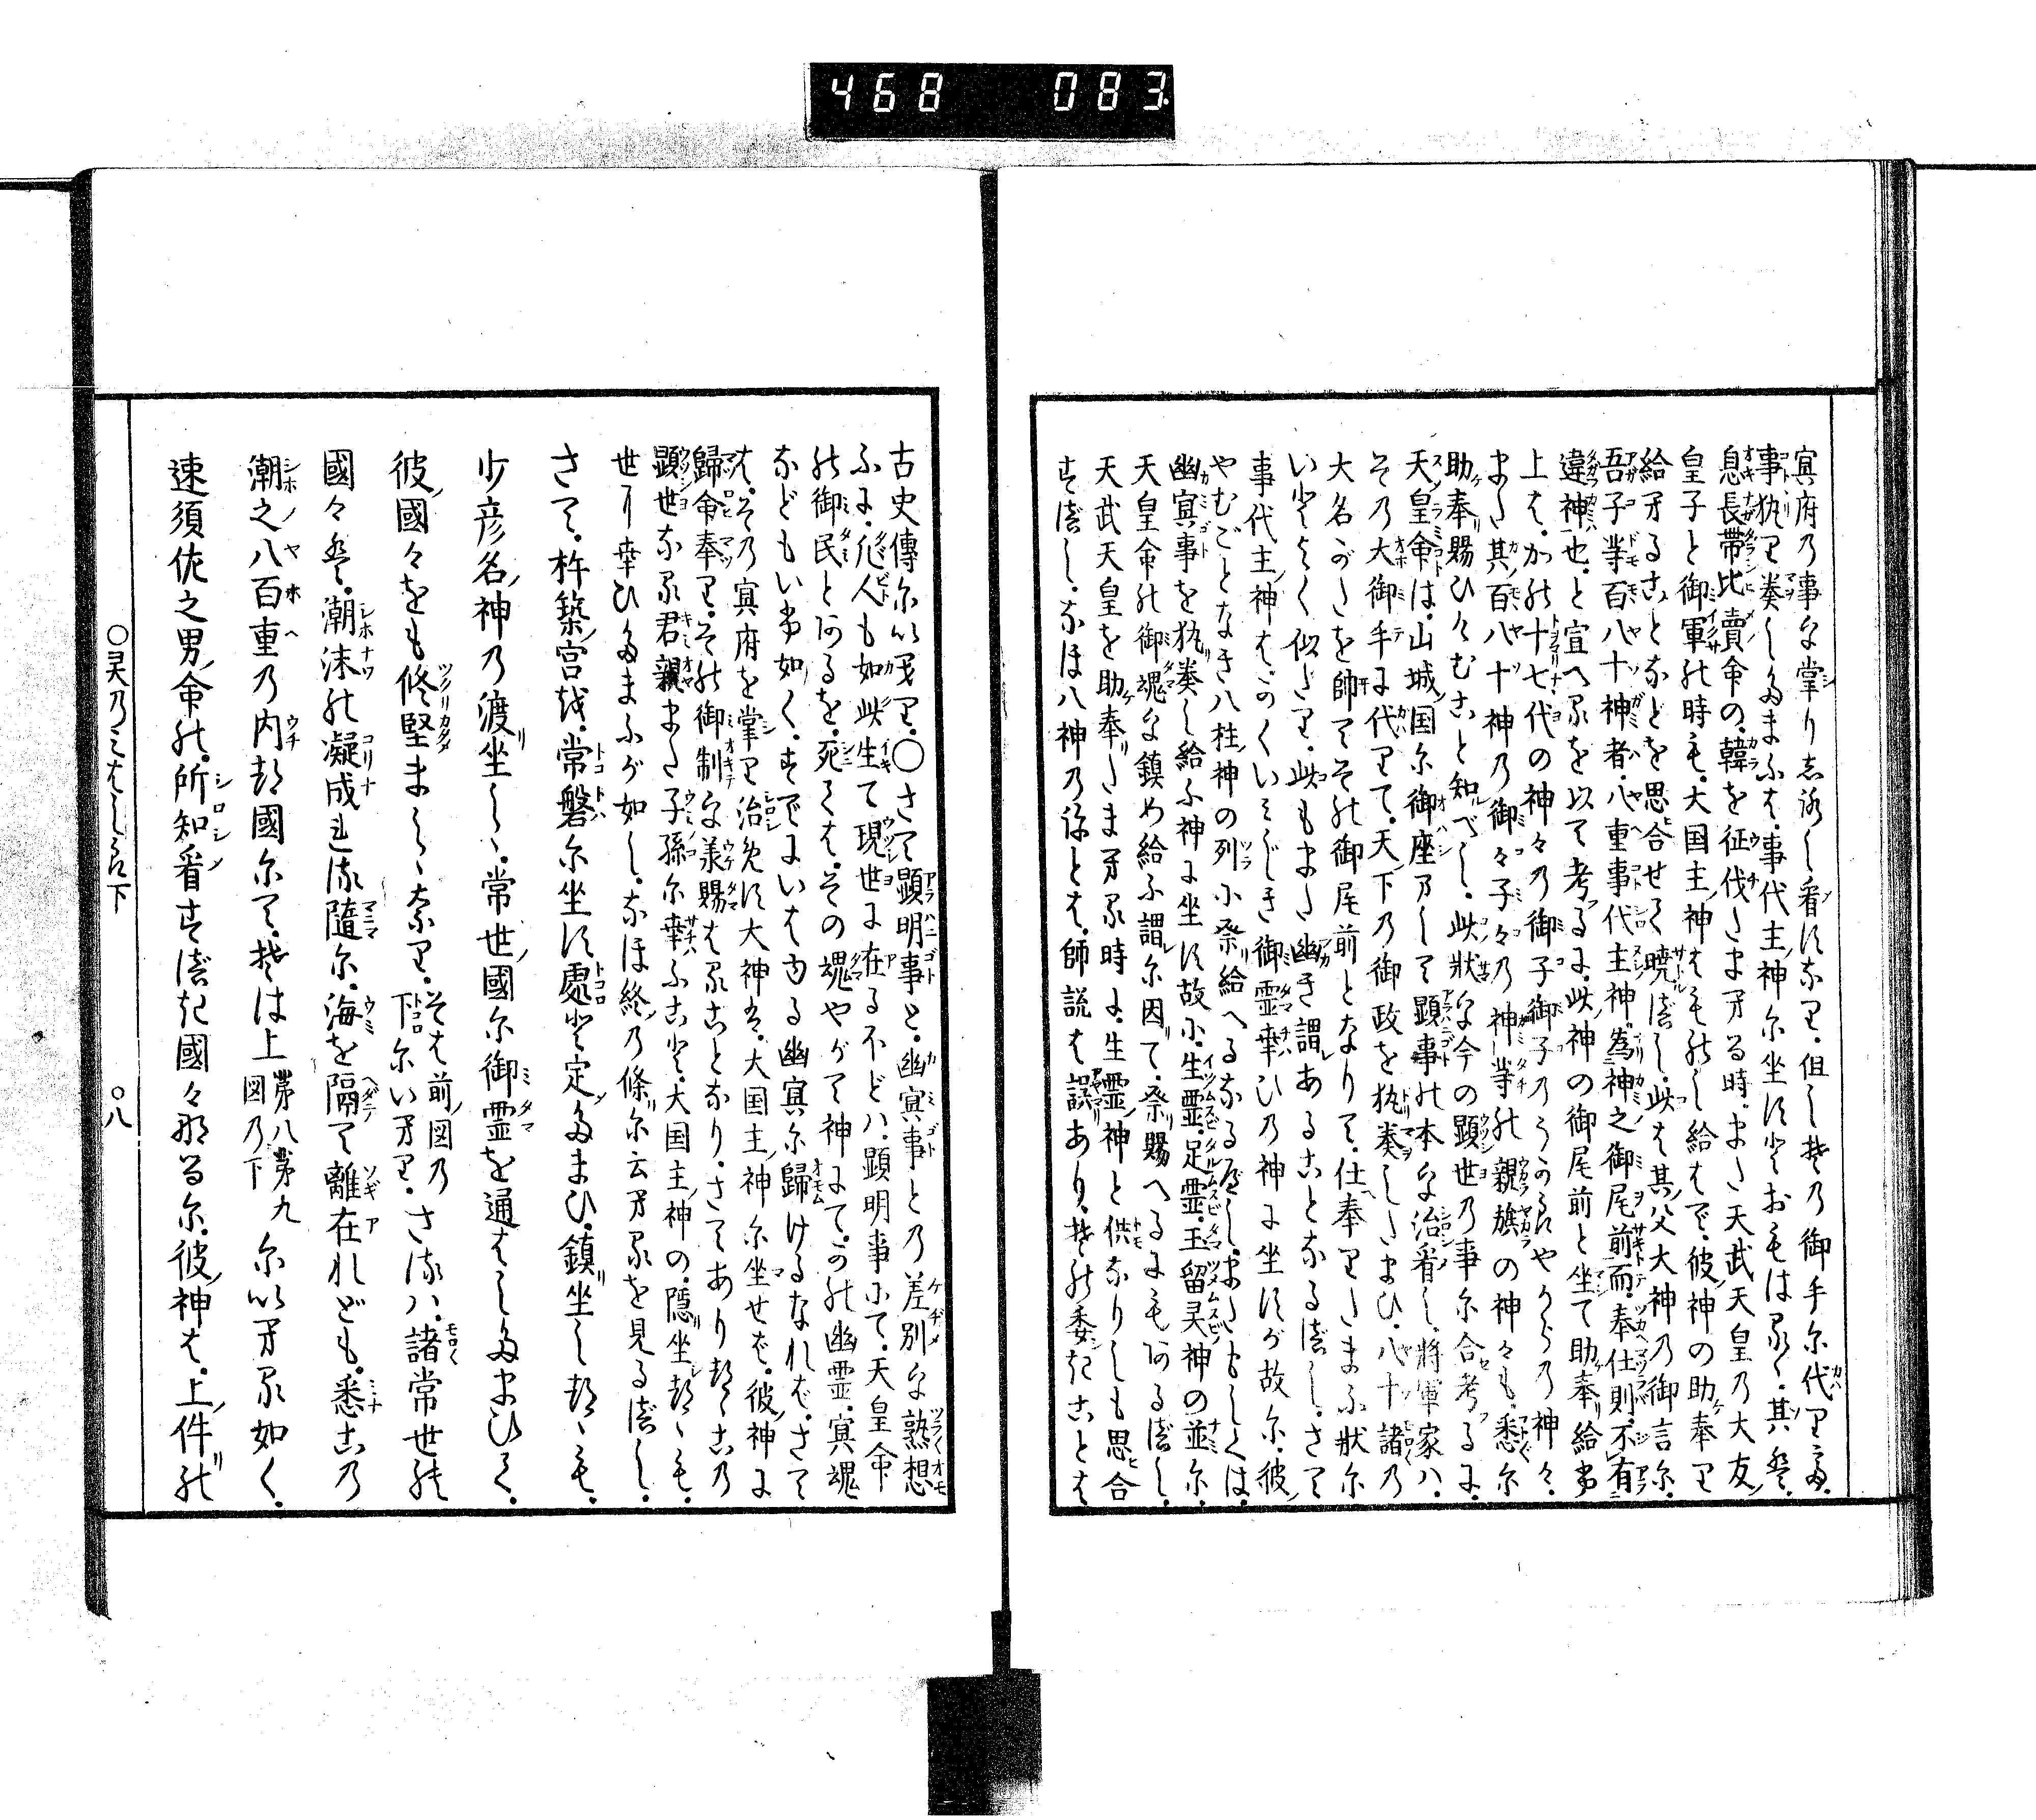 468 083
冥府乃事を掌り志ろし看すなり。但し其乃御手尓代りて。
事執り奏したまふは。事代主神尓坐すとおもはるく。其は。
息長帯比賣命の。韓を征伐たまへる時。また天武天皇乃大友
皇子と御軍の時も。大国主神はものし給はで。彼神の助奉り
給へることなどを思合せて暁べし。此は其父大神乃御言尓。
吾子等百八十神者。八重事代主神為神之御尾前而。奉仕則。不有
違神也。と宣へるを以て考るに。此神の御尾前と坐て助奉給ふ
上は。かの十七代の神々乃御子御子乃うからやから乃神々。
また其百八十神乃御々子々乃神等の親族の神々も。悉尓
助奉賜ひけむこと知べし。此状を今の顕世乃事尓合考るに。
天皇命は。山城国尓御座ましまして顕事の本を治看し。將軍家ハ。
その乃大御手に代りて。天下乃御政を執奏したまひ。八十諸乃
大名がたを師てその御尾前となりて。仕奉りたまふ状尓
いとよく似たり。此もまた幽き謂あることなるべし。さて
事代主神はかくいみじき御霊幸ひ乃神に坐すが故尓。彼
やむごとなき八柱神の列に祭給へるなるべし。またもしくは。
幽冥事を執奏し給ふ神に坐す故に。生霊。足霊。玉留灵神の並尓。
天皇命の御魂を鎮め給ふ謂尓因て。祭賜へるにも有るべし。
天武天皇を助奉たまへる時に。生霊神と供なりしも思合
すべし。なほ八神乃
ことは。師説は誤あり。其の委きことは
古史傳尓以へり。〇さて顕明事と。幽冥事との差別を熟想
ふに。凡人も如此生て現世に在るほどハ。顕明事にて。天皇命
の御民とあるを。死ては。その魂やがて神にて。かの幽霊。冥魂
などもいふ如く。すでにいはゆる幽冥尓歸けるなれば。さて
は。その冥府を掌り治めす大神は。大国主神尓坐せば。彼神に
歸命奉り。その御制を承賜はることなり。さてありても。この
顕世なる君親また子孫尓幸ふこと。大国主神の。隱坐ても。
世に幸ひたまふが如し。なほ終乃條尓云へるを見るべし。
さて。杵築宮は。常磐尓坐す處と定たまひ。鎮坐しても。
少彦名神乃渡坐し。常世國尓御霊を通はしたまひて。
彼國々をも修堅ましゝなり。そは前図乃下尓いへり。さるハ。諸常世の
國々は。潮沫の凝成れる隨尓。海を隔て離在れども。悉この
潮之八百重乃内都國尓て。其は上第八第九図乃下尓以へる如く。
速須佐之男命の。所知看すべき國々なるを。彼神は。上件の
〇灵乃みはしら下 〇八